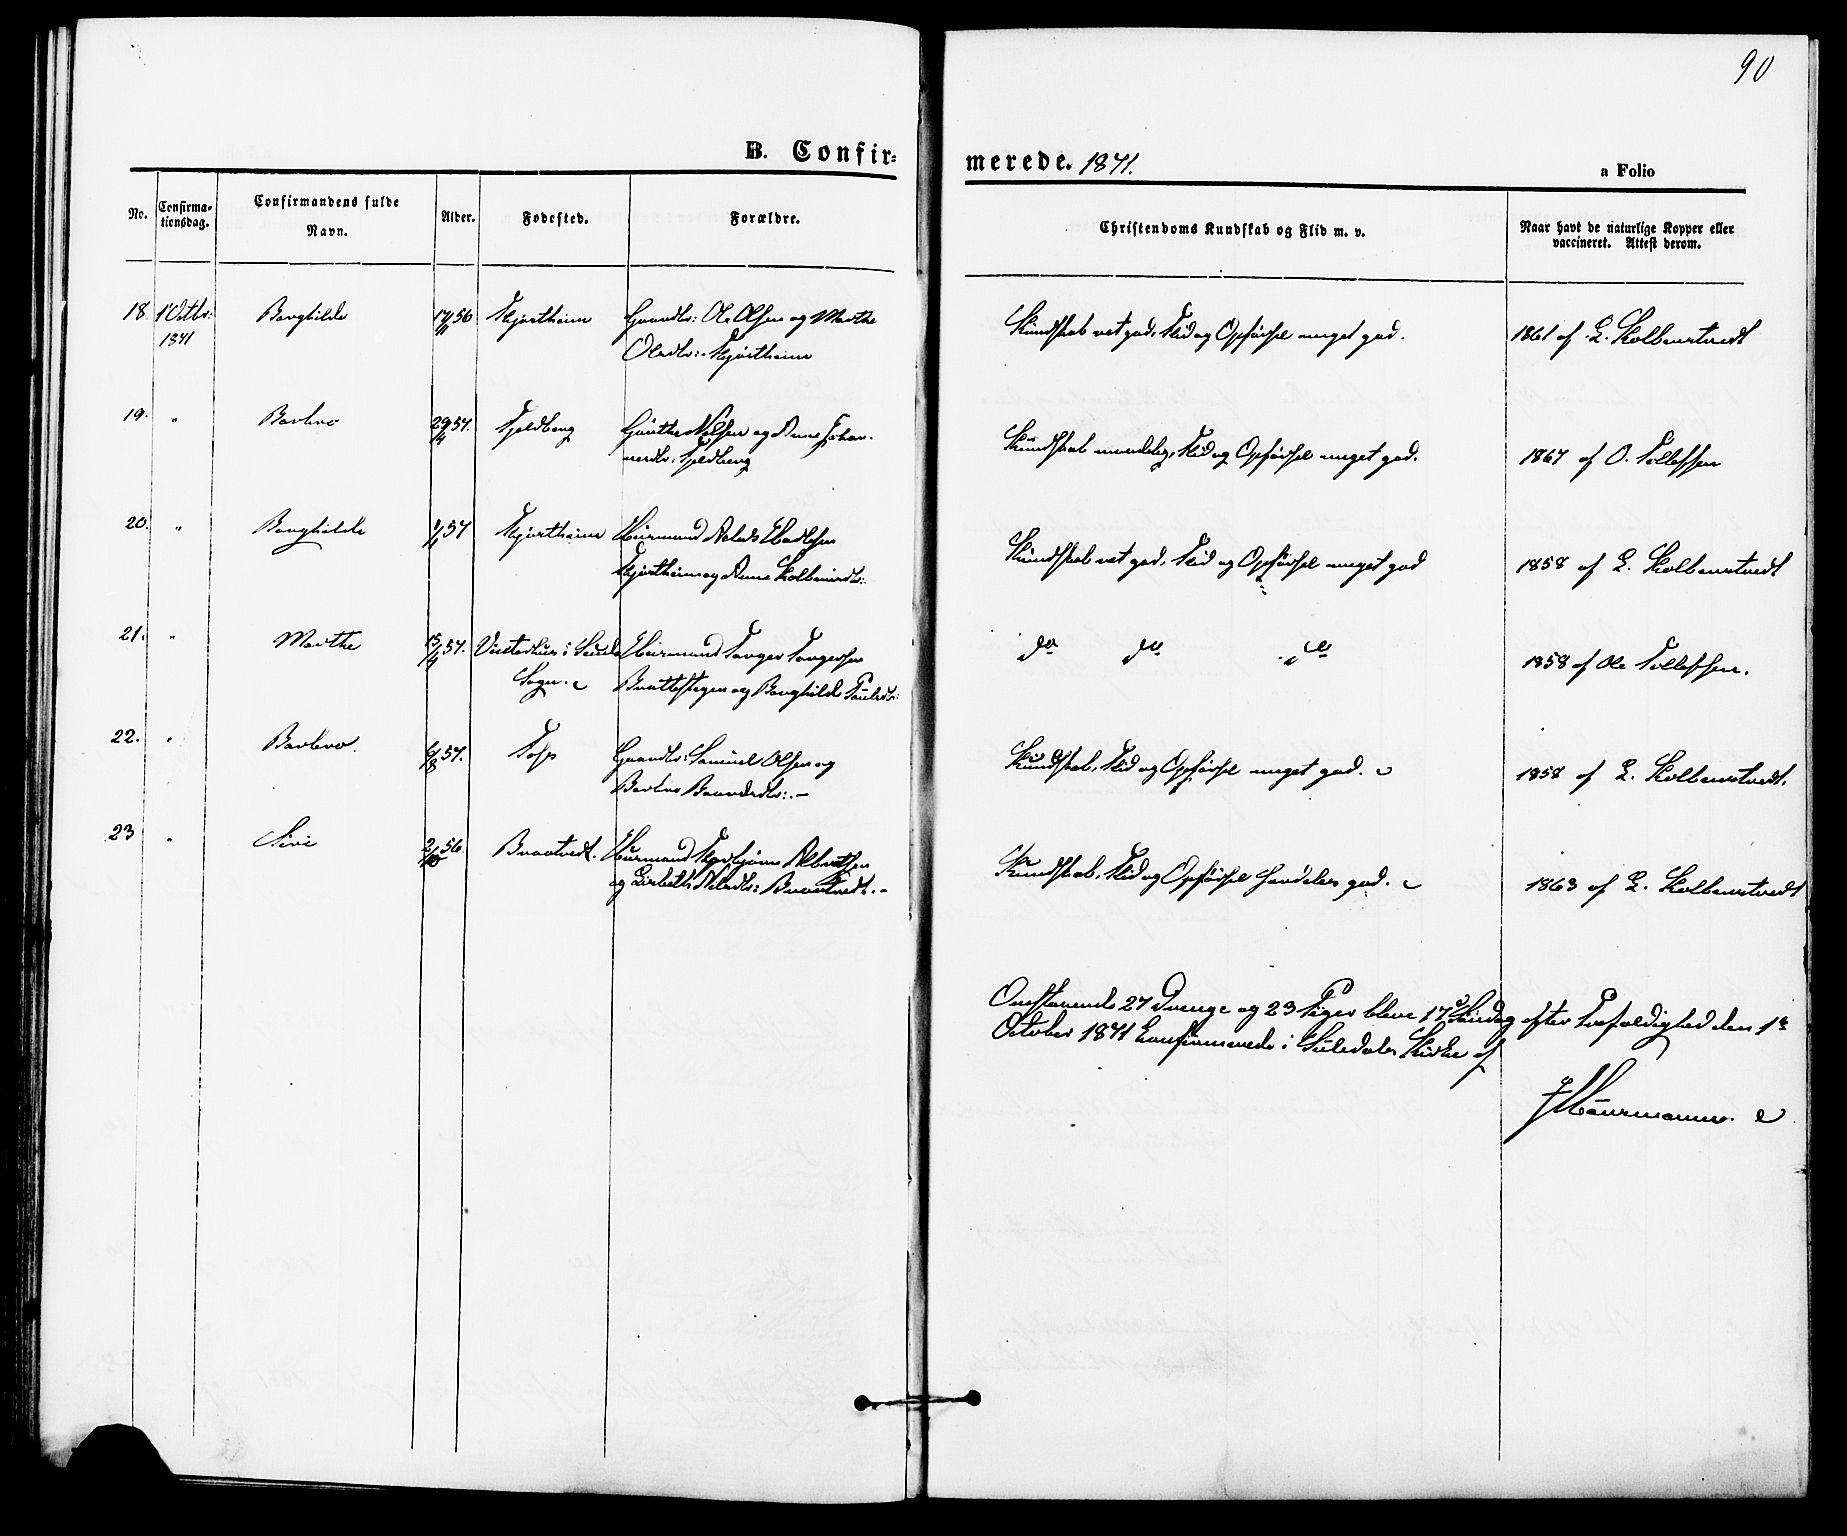 90
B. Confir=
merede. 1871.
a Folio
No.
Confirma=
tionsdag.
Confirmandens fulde
Navn.
Alder.
Fødested.
Forældre.
Christendoms Kundskab og Flid m. v.
Naar havt de naturlige Kopper eller
vaccineret. Attest derom.
18. 1 Octbr: Borghilde 17/11 56 Hjortheim Gaardbr: Ole Olsen og Marthe
1871
Olsdtr: Hjortheim
Kundskab ret god, Flid og Opførsel meget god.
1861 af L. Kolbenstvedt
19. " Barbro 29/4 57. Fjeldberg Nilsen og Anne Johan-
nesdtr: Fjeldberg
Kundskab maadelig, Flid og Opførsel meget god.
1867 af O. Tollefsen
20. " Borghilde 1/1 57 Hjortheim Huusmand
Hjortheim og Anne
Kundskab ret god, Flid og Opførsel meget god
1858 af L. Kolbenstvedt
21. " Marthe 15/4 57. i Sauda Huusmand Torger Torgersen
Sogn.
Brattestegen og Borghilde Paulsdtr:
do do do
1858 af Ole Tollefsen.
22. " Barbro. 6/8 57. Gaardbr: Samuel Olsen og
Barbro
Kundskab, Flid og Opførsel meget god.
1858 af L. Kolbenstvedt.
23 " Siri 2/10 56 Braatvedt. Huusmand Albretsen
og Lisbeth Braatvedt.
Kundskab, Flid og Opførsel særdeles god.
1863 af L. Kolbenstvedt
Omstaaende 27 Drenge og 23 Piger bleve 17de Søndag efter Trefoldighed den 1ste
October 1871 konfirmerede i Suledals Kirke af